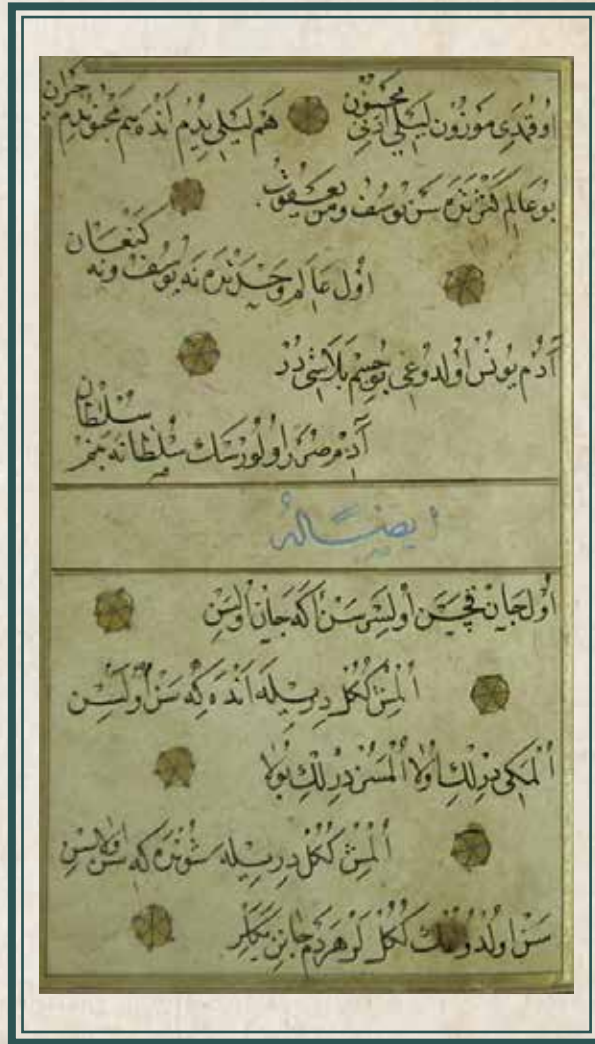 اوقدی موزون لیلی ادنی مجنون هم لیلی یدم انده هم مجنون یدم حیران
بو عالم کثرتده سن یوسف و من یعقوب
اول عالم وحدتده نه یوسف و نه کنعان
آدم یونس اولدوغی بو جسم بلاسی در
آدم صورر اولورسک سلطانه بنم سلطان
ایضًا له
اول جان قچن اولیسر سن اکا جان اولسن
المش ککل دریله انده که سن اولسن
المکی دریلک اولا المسز دریلک بولا
المش ککل دریله شونده که سن اولاسن
سن اولدوغک ککللر هر دم جانن یکلر